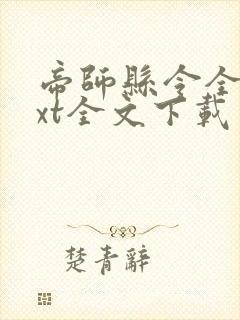 帝師縣令全
xt全文下載
楚青辭